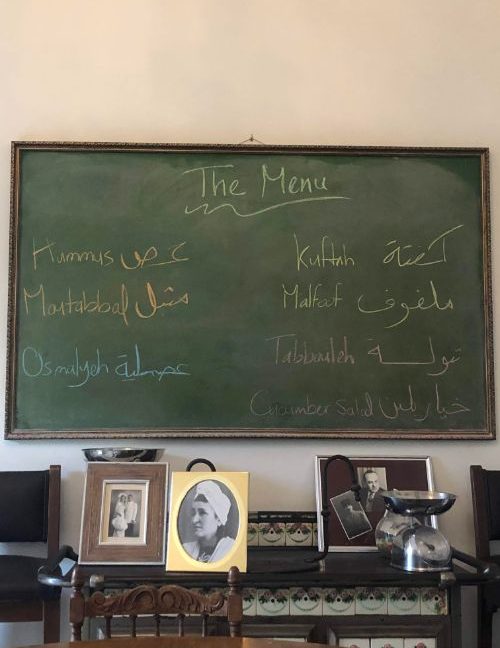 The Menu
Hummus حمص
Moutabbal متبل
Osmalyeh عصملية
Kuftah كفتة
Malfoof ملفوف
Tabbouleh تبولة
Cucumber Salad خيار بلبن